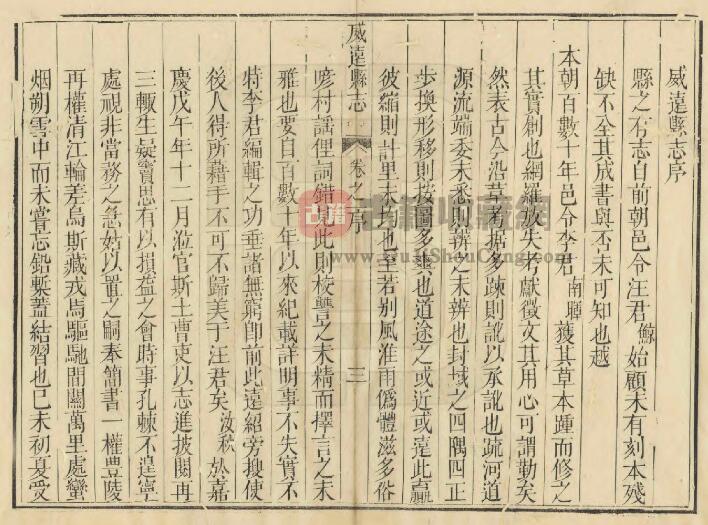 威遠縣志序
縣之有志自前朝邑令汪君鯨始顧未有刻本殘
缺不全其成書與否未可知也越
本朝百數十年邑令李君南暉獲其草本踵而修之
其實創也網羅放失考獻徵文其用心可謂勤矣
然表古今沿革考据多踈則訛以承訛也疏河道
源流端委未悉則辨之未辨也封域之四隅四正
步換形移則按圖多爽也道途之或近或遠此贏
彼縮則計里未均也至若别風淮雨僞體滋多俗
威遠縣志
卷之一序
三
諺村謡俚詞錯出此則校讐之未精而擇言之未
雅也要自百數十年以來紀載詳明事不失實不
特李君編輯之功垂諸無窮卽前此遠紹旁搜使
後人得所藉手不可不歸美于汪君矣汝秋於嘉
慶戊午年十二月涖官斯土曹吏以志進披閱再
三輙生疑竇思有以損益之會時事孔棘不遑寧
處視非當務之急姑以置之嗣奉簡書一權豊陵
再權清江輪差烏斯藏戎馬驅馳間關萬里處蠻
烟朔雪中而未嘗忘鉛槧蓋結習也己未初夏受
古籍
书籍收藏网
www.YuJiShouCang.com